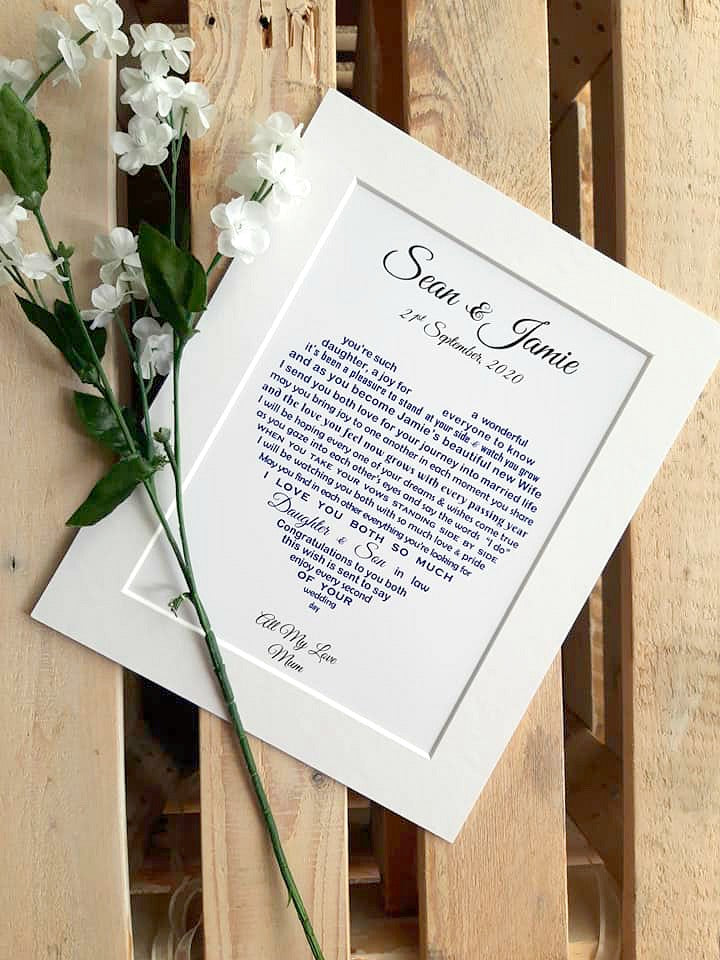 Sean & Jamie
21st September, 2020
you're such a wonderful
daughter, a joy for everyone to know
it's been a pleasure to stand at your side & watch you grow
and as you become Jamie's beautiful new Wife
I send you both love for your journey into married life
may you bring joy to one another in each moment you share
and the love you feel now grows with every passing year
I will be hoping every one of your dreams & wishes come true
as you gaze into each other's eyes and say the words "I do"
WHEN YOU TAKE YOUR VOWS STANDING SIDE BY SIDE
I will be watching you both with so much love & pride
May you find in each other everything you're looking for
I LOVE YOU BOTH SO MUCH
Daughter & Son in law
Congratulations to you both
this wish is sent to say
enjoy every second
OF YOUR
wedding
day
All My Love
Mum